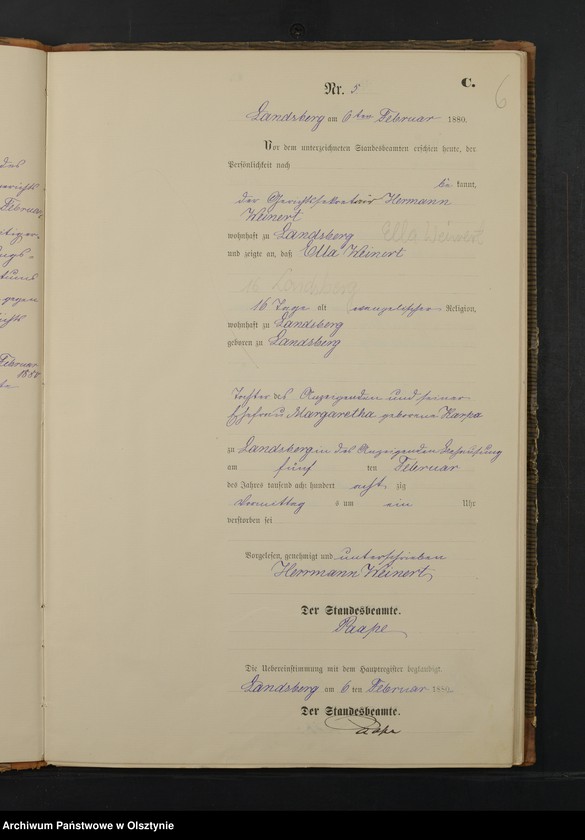 C.
6
Nr. 5
Landsberg am 6ten Februar 1880.
Vor dem unterzeichneten Standesbeamten erschien heute, der
Persönlichkeit nach
be kannt,
der Gerichtssekretair Hermann
Weinert
wohnhaft zu Landsberg
Ella Weinert
und zeigte an, daß Ella Weinert
16 Tage alt evangelischer Religion,
wohnhaft zu Landsberg
geboren zu Landsberg
Tochter des Anzeigenden und seiner
Ehefrau Margaretha geborene
zu Landsberg in des Anzeigenden Behausung
am fünf ten Februar
des Jahres tausend acht hundert acht zig
Vormittag s um ein Uhr
verstorben sei
Vorgelesen, genehmigt und unterschrieben
Herrmann Weinert
Der Standesbeamte.
Paape
Die Uebereinstimmung mit dem Hauptregister beglaubigt.
Landsberg am 6 ten Februar 1880.
Der Standesbeamte.
Paape
Archiwum Państwowe w Olsztynie